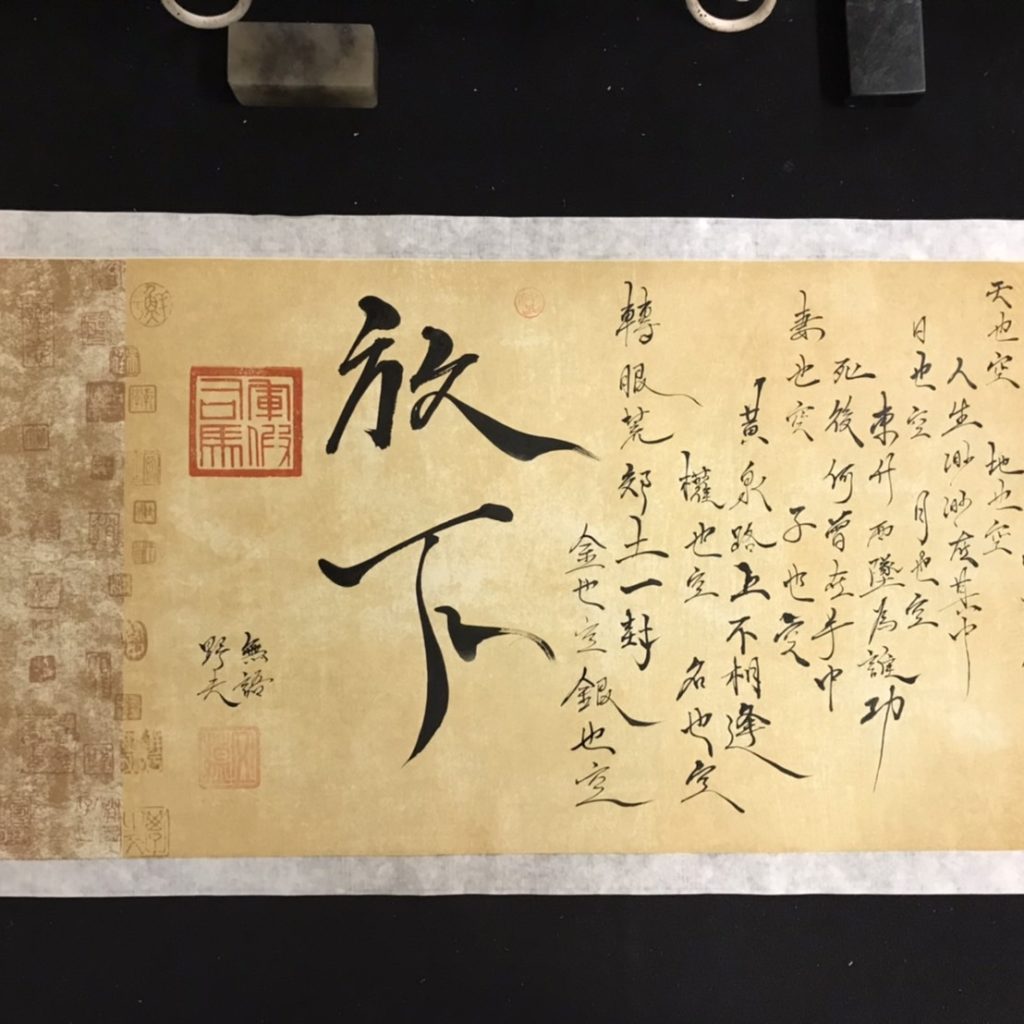 天也空 地也空
人生渺渺在其中
日也空 月也空
東升西墜為誰功
死後何曾在手中
妻也空 子也空
黃泉路上不相逢
權也空 名也空
轉眼荒郊土一封
金也空 銀也空
放下
無語
野夫
軍假
司馬